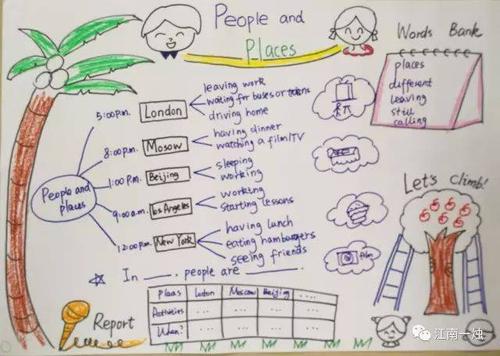 People and
Places
Words Bank
places
different
leaving
still
calling
People and
places
5:00p.m.
London
leaving work
waiting for buses or trains
driving home
8:00p.m.
Mosow
having dinner
watching a film/TV
1:00P.m.
Beijing
sleeping
working
9:00a.m.
Los Angeles
working
starting lessons
12:00p.m.
New York
having lunch
eating hamburgers
seeing friends
film
Let's Climb!
In ____. people are ____.
Report
Plaas Lodon Moscow Beijing ....
Activities ... ... ... ...
When? ... ... ... ...
江南一烛